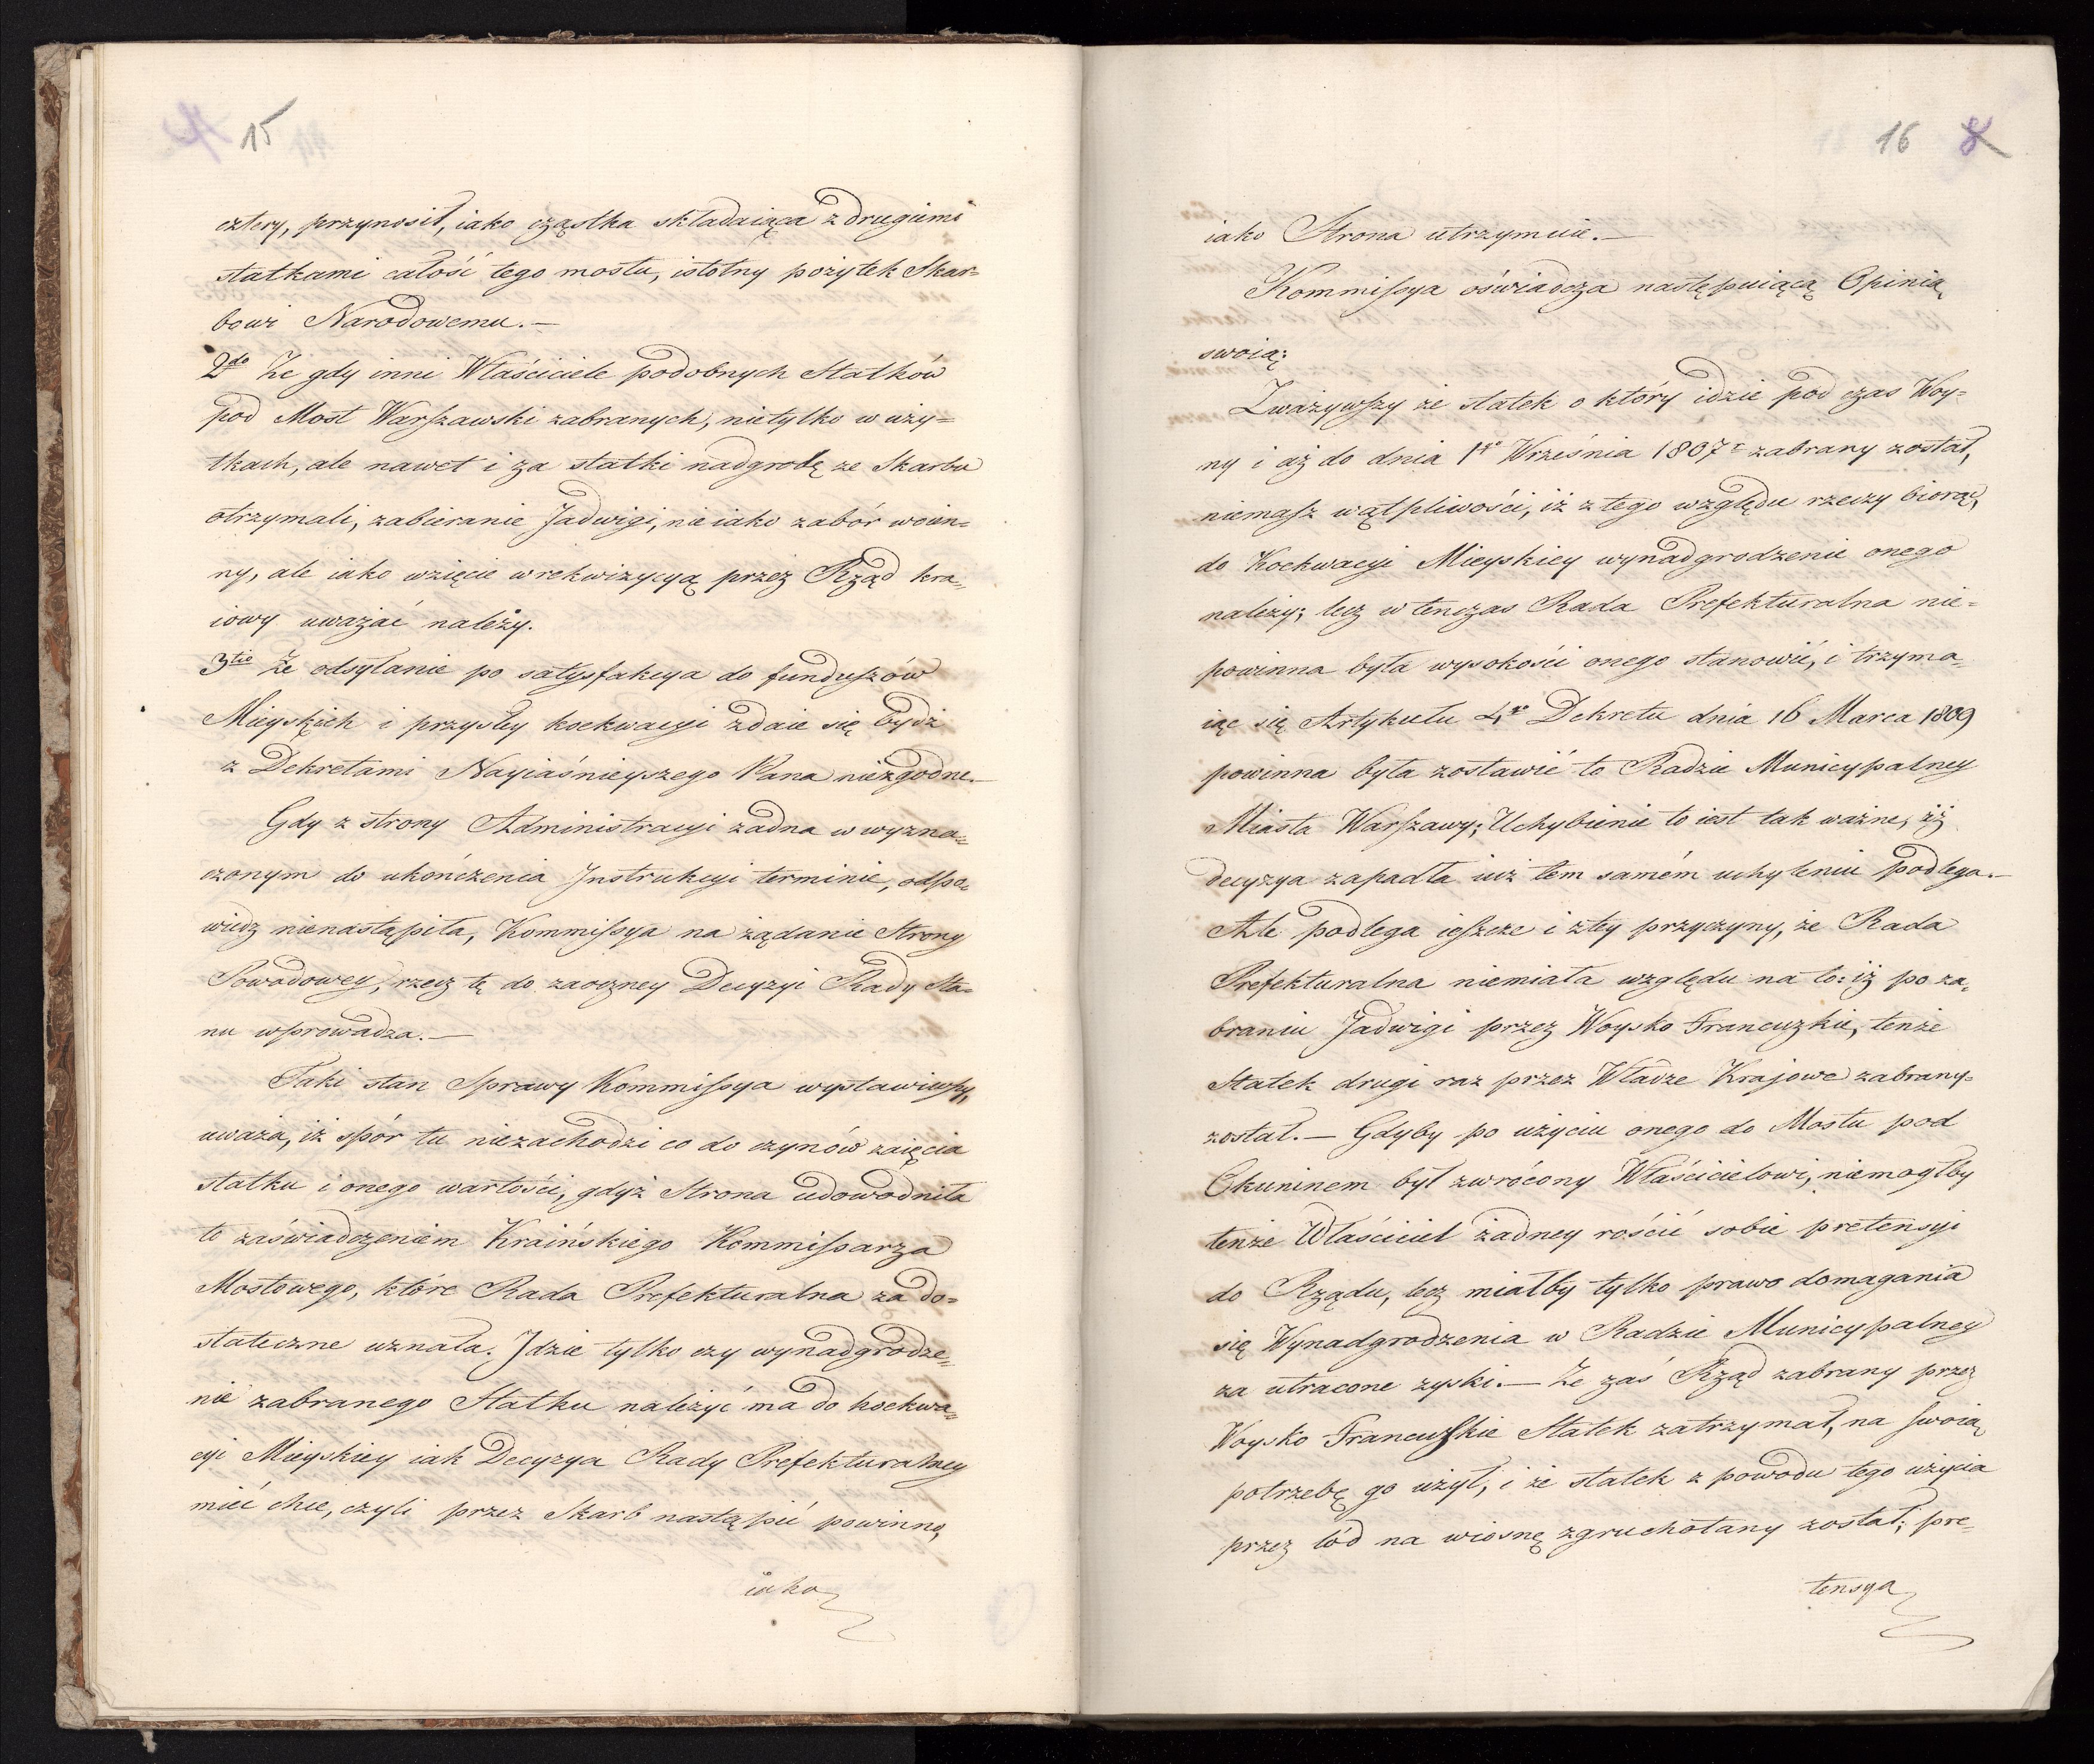 15
cztery, przynosił, iako cząstka składaiąca z drugiemi
statkami całość tego mostu, istotny pożytek Skar=
bowi Narodowemu.—
2do Że gdy inni Właściciele podobnych Statków
pod Most Warszawski zabranych, nietylko w uży=
tkach, ale nawet i za statki nadgrodę ze Skarbu
otrzymali, zabieranie Jadwigi, nie iako zabór woien=
ny, ale iako wzięcie w rekwizycyą przez Rząd kra=
iowy uważać należy.
3tio Że odsyłanie po satysfakcya do funduszów
Mieyskich i przyszłey koekwacyi zdaie się bydź
z Dekretami Nayiaśnieyszego Pana niezgodne.—
Gdy z strony Administracyi żadna w wyzna=
czonym do ukończenia Jnstrukcyi terminie, odpo=
wiedz nienastąpiła, Kommissya na żądanie Strony
Powodowey, rzecz tę do zaoczney Decyzyi Rady Sta=
nu wprowadza.—
Taki stan Sprawy Kommissya wystawiwszy,
uważa, iż spór tu niezachodzi co do czynów zaięcia
statku i onego wartości, gdyż Strona udowodniła
to zaświadczeniem Kraińskiego Kommissarza
Mostowego, które Rada Prefekturalna za do=
stateczne uznała. Jdzie tylko czy wynadgrodze=
nie zabranego Statku należyć ma do koekwa=
cyi Mieyskiey iak Decyzya Rady Prefekturalney
mieć chce, czyli przez Skarb nastąpić powinno,
iako
16 8
iako Strona utrzymuie.—
Kommissya oświadcza następuiącą Opinią
swoią:
Zważywszy że statek o który idzie pod czas Woy=
ny i aż do dnia 1go Września 1807 r zabrany został,
niemasz wątpliwości, iż z tego względu rzeczy biorąc,
do Koekwacyi Mieyskiey wynadgrodzenie onego
należy; lecz w tenczas Rada Prefekturalna nie=
powinna była wysokości onego stanowić, i trzyma=
iąc się Artykułu 4go Dekretu dnia 16 Marca 1809
powinna była zostawić to Radzie Municypalney
Miasta Warszawy; Uchybienie to iest tak ważne, iż
decyzya zapadła iuż tem samém uchyleniu podlega.—
Ale podlega ieszcze i z tey przyczyny, że Rada
Prefekturalna niemiała względu na to: iż po za=
braniu Jadwigi przez Woysko Francuzkie, tenże
Statek drugi raz przez Władze Krajowe zabrany=
został.— Gdyby po użyciu onego do Mostu pod
Okuninem był zwrócony Właścicielowi, niemogłby
tenże Właściciel żadney rościć sobie pretensyi
do Rządu, lecz miałby tylko prawo domagania
się Wynadgrodzenia w Radzie Municypalney
za utracone zyski.— Że zaś Rząd zabrany przez
Woysko Francuskie Statek zatrzymał, na swoią
potrzebę go użył, i że statek z powodu tego użycia
przez lód na wiosnę zgruchotany został; pre=
tensya